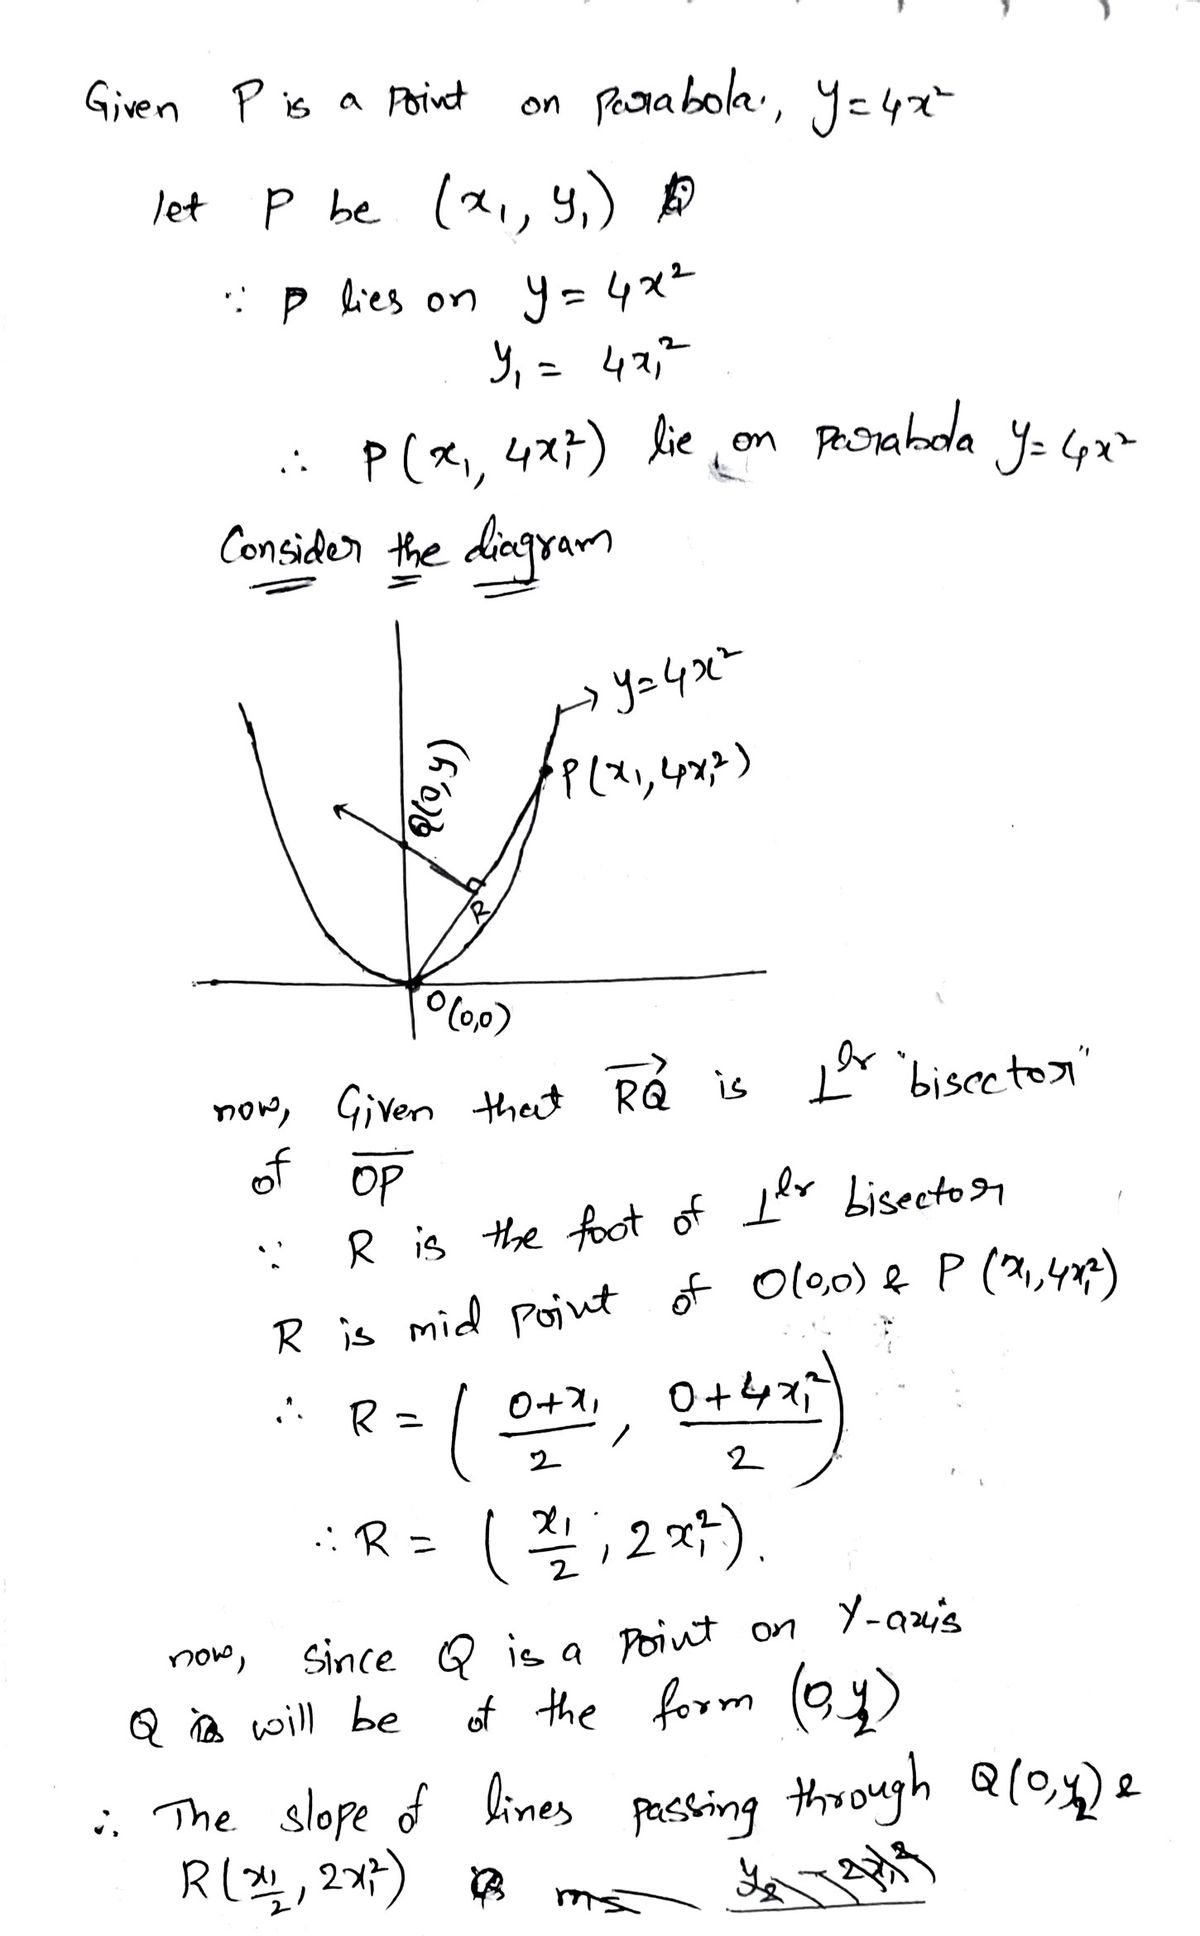 Given P is a point on parabola, y=4x²
let P be (x₁, y₁)
∵ P lies on y = 4x²
y₁ = 4x₁²
∴ P(x₁, 4x₁²) lie on parabola y=4x²
Consider the diagram
→ y=4x²
P(x₁, 4x₁²)
Q(0,y)
R
O(0,0)
now, Given that RQ→ is ⊥lr "bisector"
of OP
∵ R is the foot of ⊥lr bisector
R is mid point of O(0,0) & P(x₁, 4x₁²)
∴ R = ( (0+x₁)/2 , (0+4x₁²)/2 )
∴ R = ( x₁/2 , 2x₁²).
now, since Q is a point on Y-axis
Q will be of the form (0,y₂)
∴ The slope of lines passing through Q(0,y₂) &
R(x₁/2, 2x₁²)